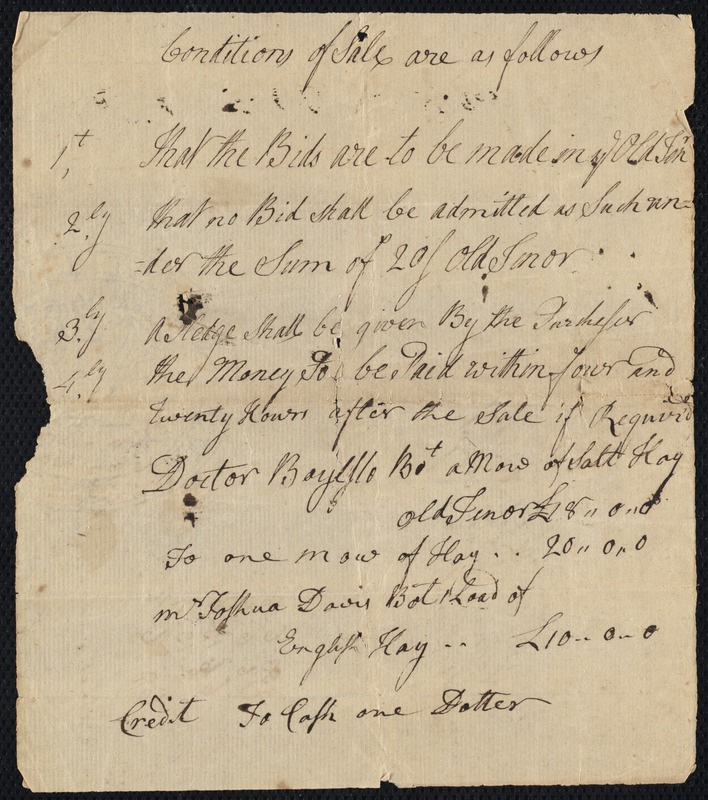 Conditions of Sale are as follows
1,t That the Bids are to be made in ye Old Tenr
2.ly That no Bid shall be admitted as Such un=
=der the Sum of 20/ Old Tenor
3.ly a Pledge shall be given By the Purchesur
4.ly the Money To be Paid within four and
twenty Hours after the Sale if Requir'd
Doctor Boylsto Bot a Mow of Salt Hay
old Tenor £18,, 0,,0
To one mow of Hay . . 20,, 0,,0
mr Joshua Davis Bot 1 Load of
English Hay . . £10.. 0..0
Credit To Cash one Dotter